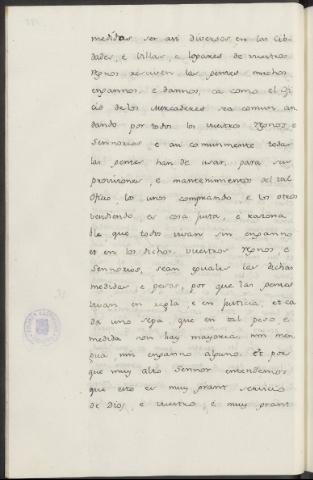 medidas ser asi diversas en las Cib-
dades, e Villas, e logares de vuestros
regnos reciven las gentes muchos
engannos, e dannos, ca como el Ofi-
cio de los Mercaderes sea comun an-
dando por todos los vuestros Regnos e
Sennorios e asi comunmente todas
las gentes han de usar, para sus
provisiones, e mantenimientos del tal
Oficio los unos comprando, e los otros
vendiendo, es cosa justa, e razona-
ble que todos vivan sin enganno
et en los dichos vuestros Regnos e
Sennorios, sean eguales las dichas
medidas e pesos, por que las gentes
vivan en regla e en justicia, et ca-
da uno sepa que en tal peso e
medida non hay mayoria, nin men-
gua, nin enganno alguno. Et por-
que muy alto Sennor entendemos
que esto es muy grant servicio
de Dios, e vuestro e muy grant